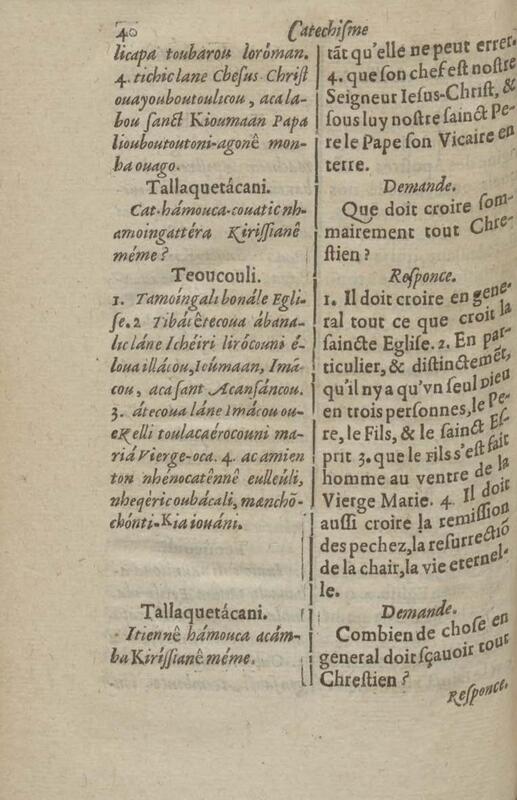 40 Catechisme
licapa toubarou loróman.
4. tichic lane Chesus Christ
ouayouboutoulicou, acala-
bou sanct Kioumaan Papa
liouboutoutoni-agonê mon-
ba ouago.
Tallaquetácani.
Cat-hámouca-couatic nh-
amoingattéra Kirissianê
méme?
Teoucouli.
1. Tamoingali bonále Egli-
se. 2 Tibátêtecoua ábana-
lic láne Ichéiri lirócouni é-
loua illácou, Ioúmaan, Imá-
cou, aca sant Acansáncou.
3. átecoua láne Imácou ou-
eKelli toulacaérocouni ma-
riá Vierge-oca. 4. ac amien
ton nhénocatênnê eulleúli,
nheqéric oubácali, mænchö-
chónti-Kia iouáni.
Tallaquetácani.
Itiennê hámouca acám-
ba Kirissianê méme.
tāt qu'elle ne peut errer.
4. que son chef est nostre
Seigneur Iesus-Christ, &
sous luy nostre sainct Pe-
re le Pape son Vicaire en
terre.
Demande.
Que doit croire som-
mairement tout Chre-
stien?
Responce.
1. Il doit croire en gene-
ral tout ce que croit la
saincte Eglise. 2. En par-
ticulier, & distinctemēt,
qu'il ny a qu'vn seul Dieu
en trois personnes, le Pe-
re, le Fils, & le sainct Es-
prit 3. que le Fils s'est fait
homme au ventre de la
Vierge Marie. 4. Il doit
aussi croire la remission
des pechez, la resurrectiō
de la chair, la vie eternel-
le.
Demande.
Combien de chose en
general doit sçauoir tout
Chrestien?
Responce.